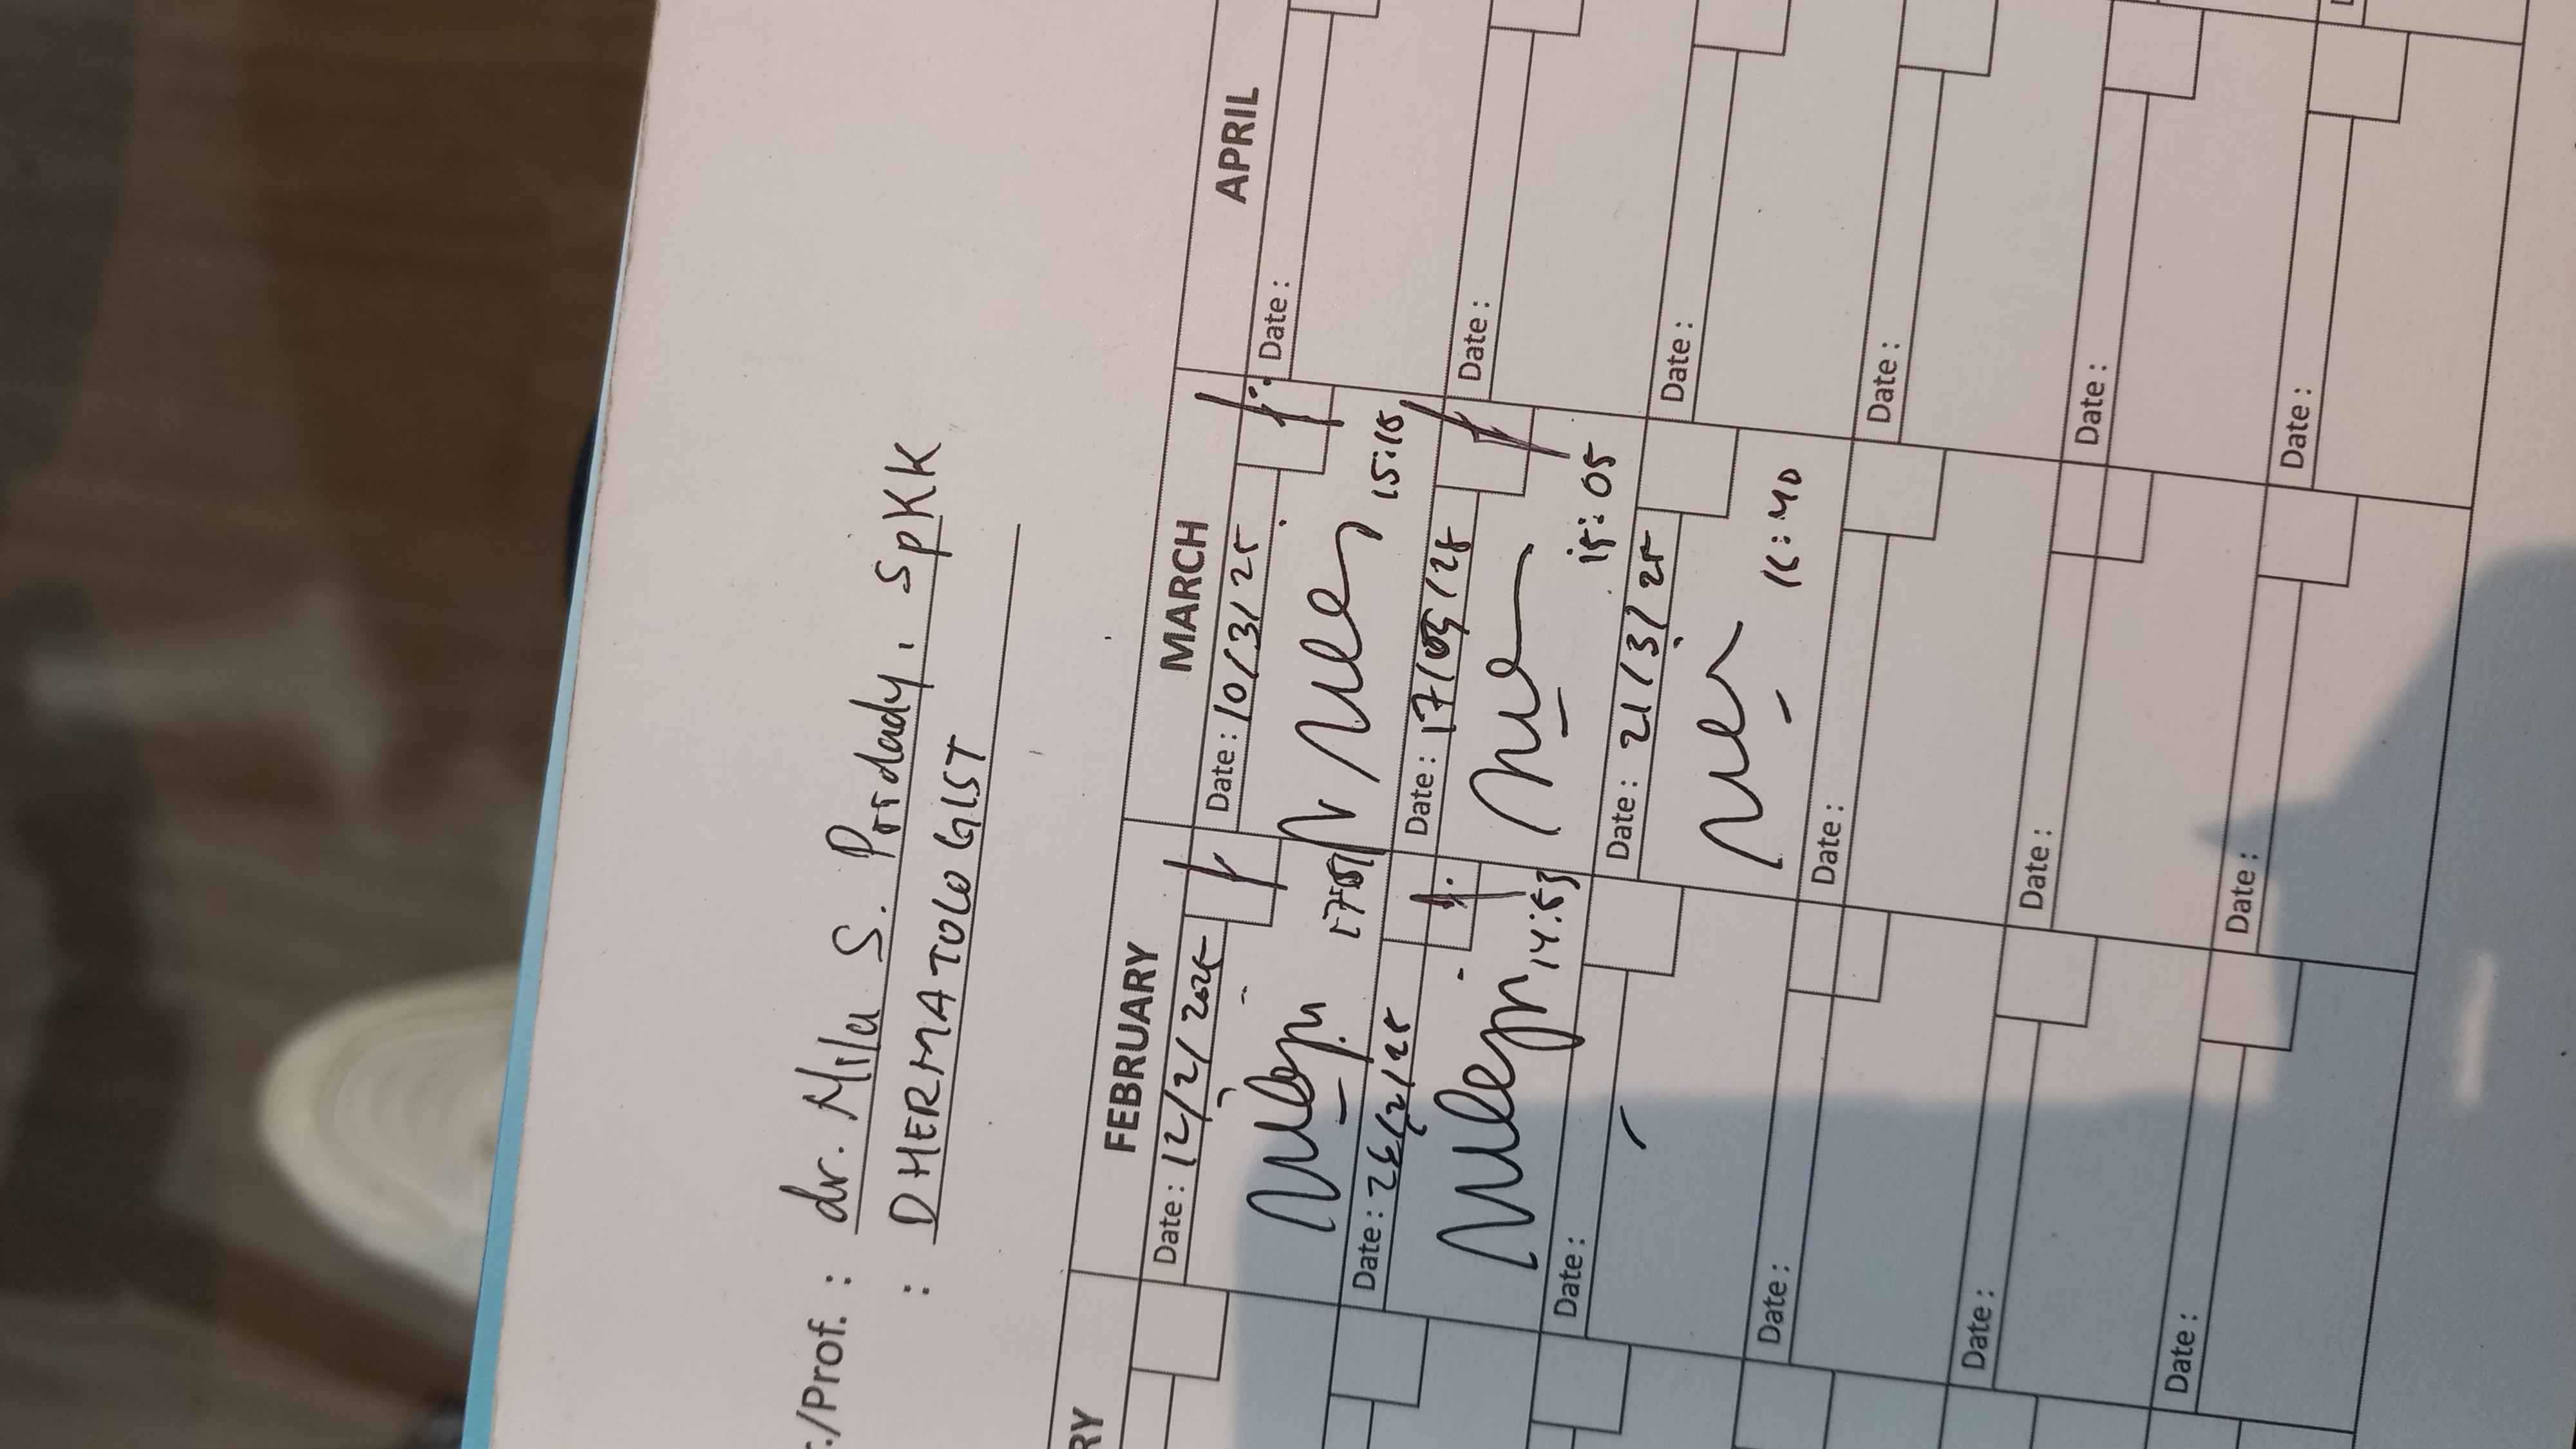 r./Prof. : dr. Mila S.
: DHERMATOLOGIST
RY
FEBRUARY
MARCH
APRIL
Date : 12/2/2025
Date : 10/3/25
Date :
15:15
Date : 26/2/25
Date : 17/03/25
Date :
14:53
15:05
Date :
Date : 21/3/25
Date :
Date :
Date :
Date :
Date :
Date :
Date :
Date :
Date :
Date :